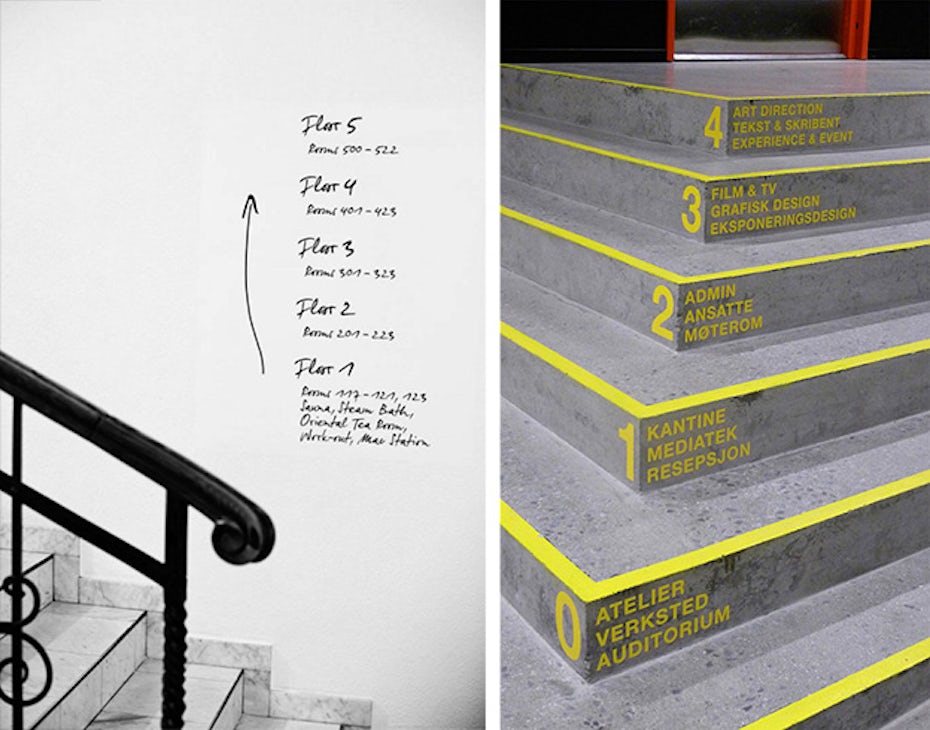 Floor 5
Rooms 500 – 522
Floor 4
Rooms 401 – 423
Floor 3
Rooms 301 – 323
Floor 2
Rooms 201 – 223
Floor 1
Rooms 117 – 121, 123
Sauna, Steam Bath,
Oriental Tea Room,
Work-out, Mac Station
4
ART DIRECTION
TEKST & SKRIBENT
EXPERIENCE & EVENT
3
FILM & TV
GRAFISK DESIGN
EKSPONERINGSDESIGN
2
ADMIN
ANSATTE
MØTEROM
1
KANTINE
MEDIATEK
RESEPSJON
0
ATELIER
VERKSTED
AUDITORIUM